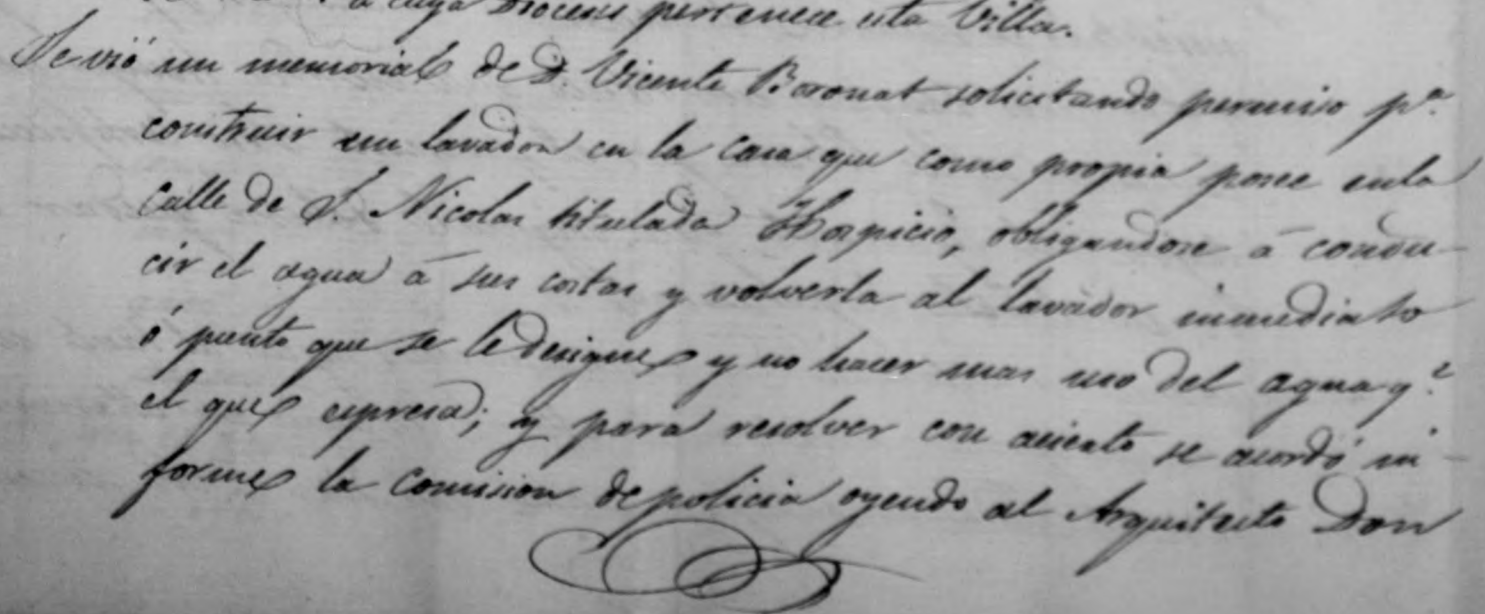 á cuya Diocesis pertenece esta Villa.
Se vió un memorial de D. Vicente Boronat solicitando permiso pª.
construir un lavador en la casa que como propia posee en la
calle de S. Nicolas titulada Hospicio, obligandose á condu-
cir el agua á sus costas y volverla al lavador inmediato
ó punto que se le designe y no hacer mas uso del agua q.e
el que espresa; y para resolver con acierto se acordó in-
forme la comision de policia oyendo al Arquitecto Don